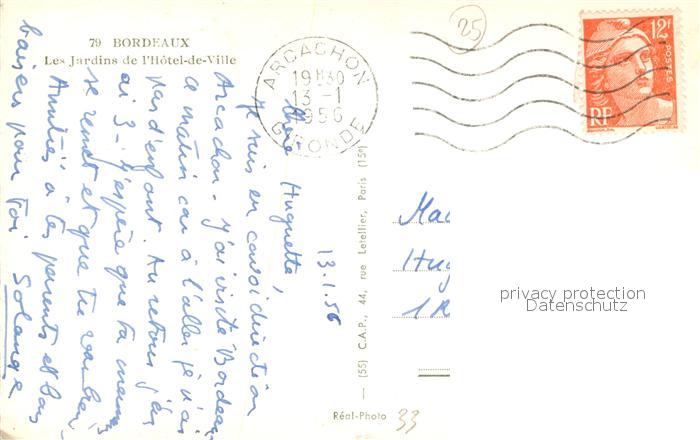 79 BORDEAUX
Les Jardins de l'Hôtel-de-Ville
25
ARCACHON
19H30
13 - 1
1956
GIRONDE
12F
POSTES
RF
13.1.56
Chère Huguette,
Je suis en convoi direction
Arcachon - J'ai visité Bordeaux
ce matin car à l'aller je n'ai
pas d'enfant. Au retour j'en
ai 3 - J'espère que ta maman
se remet et que tu
Amitiés à tes parents et bons
baisers pour toi. Solange
(55) C.A.P., 44, rue Letellier, Paris (15e)
Réal-Photo
33
Hug
privacy protection
Datenschutz